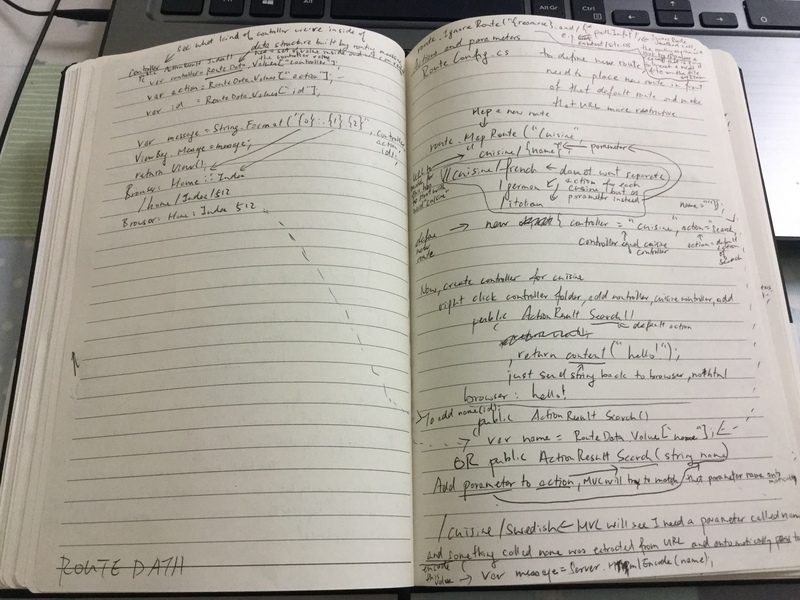 see what kind of controller we're inside of
data structure built by routing engine
var controller = RouteData.Values["controller"];
the controller value
var action = RouteData.Values["action"];
var id = RouteData.Values["id"];
var message = String.Format("{0}::{1} {2}", controller,
action,
id);
ViewBag.Message = message;
return View();
Browser: Home::Index
/Home/Index/512
Browser: Home: Index 512
ROUTE DATA
route.IgnoreRoute("{resource}.axd/{
Actions and parameters
RouteConfig.cs
to define new route
need to place new route in front
of that default route and make
that URL more restrictive
Map a new route
route.MapRoute("Cuisine"
"cuisine/{name}", ← parameter
//cuisine/french ← do not want separate
/german action for each
cuisine, but as
/italian parameter instead
name=""});
define
route
→ new { controller = "cuisine", action = "search",
Controller equal cuisine
controller
action = default
action
of
search
Now, create controller for cuisine
right click controller folder, add controller, cuisine controller, add
public ActionResult Search()
default action
return content("hello!");
just send string back to browser, not html
browser: hello!
To add name(id):
public ActionResult Search()
→ var name = RouteData.Value["name"];
OR public ActionResult Search(string name)
Add parameter to action, MVC will try to match that parameter name automatically
/Cuisine/Swedish ← MVC will see I need a parameter called name
and something called name was extracted from URL and automatically pass to
encode
this value → var message = Server.HtmlEncode(name);